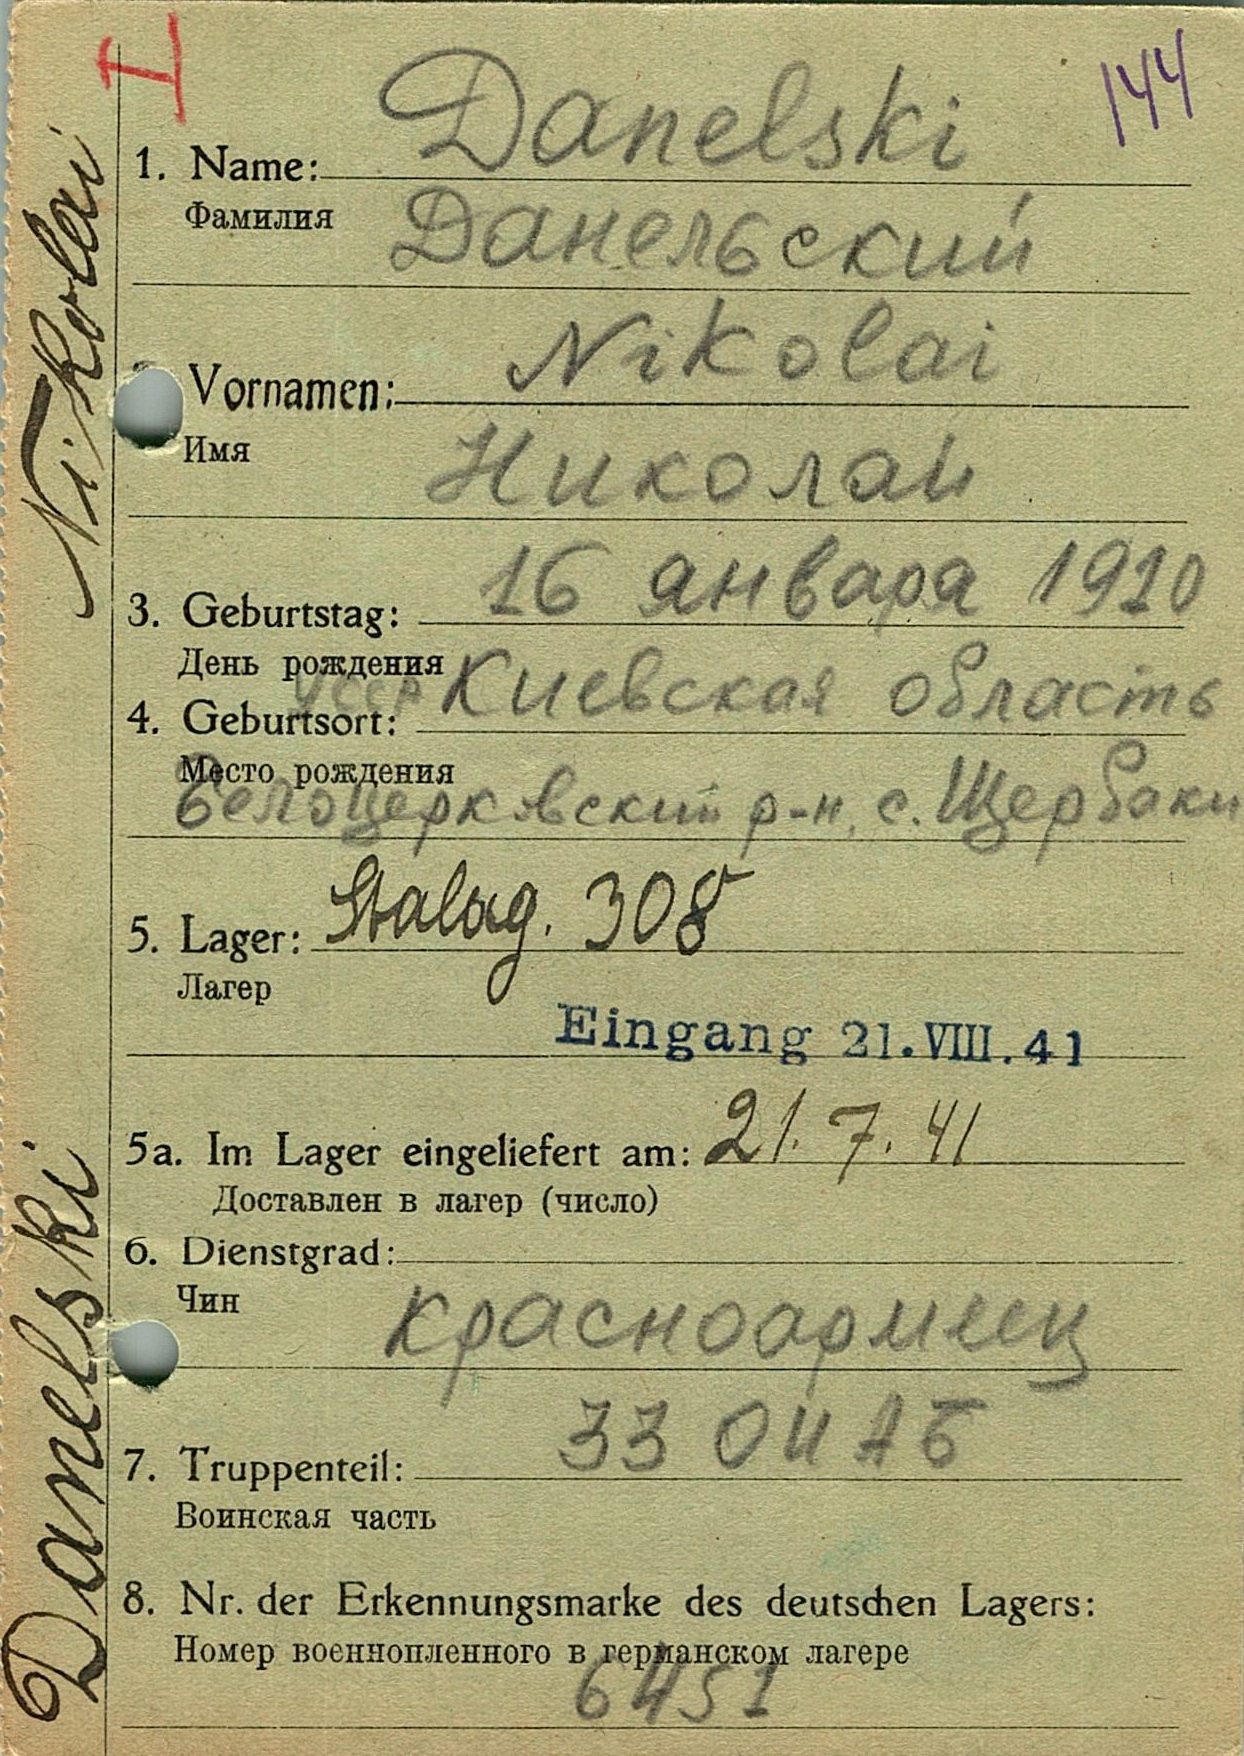 I
144
Danelski
1. Name:
Фамилия
Данельский
Nikolai
Vornamen:
Имя
Николай
16 января 1910
3. Geburtstag:
День рождения
УССР Киевская область
4. Geburtsort:
Место рождения
Белоцерковский р-н, с. Щербаки
5. Lager: Stalag. 308
Лагер
Eingang 21.VIII.41
5a. Im Lager eingeliefert am: 21.7.41
Доставлен в лагер (число)
6. Dienstgrad:
Чин
красноармеец
7. Truppenteil: 33
Воинская часть
8. Nr. der Erkennungsmarke des deutschen Lagers:
Номер военнопленного в германском лагере
6451
Danelski Nikolai